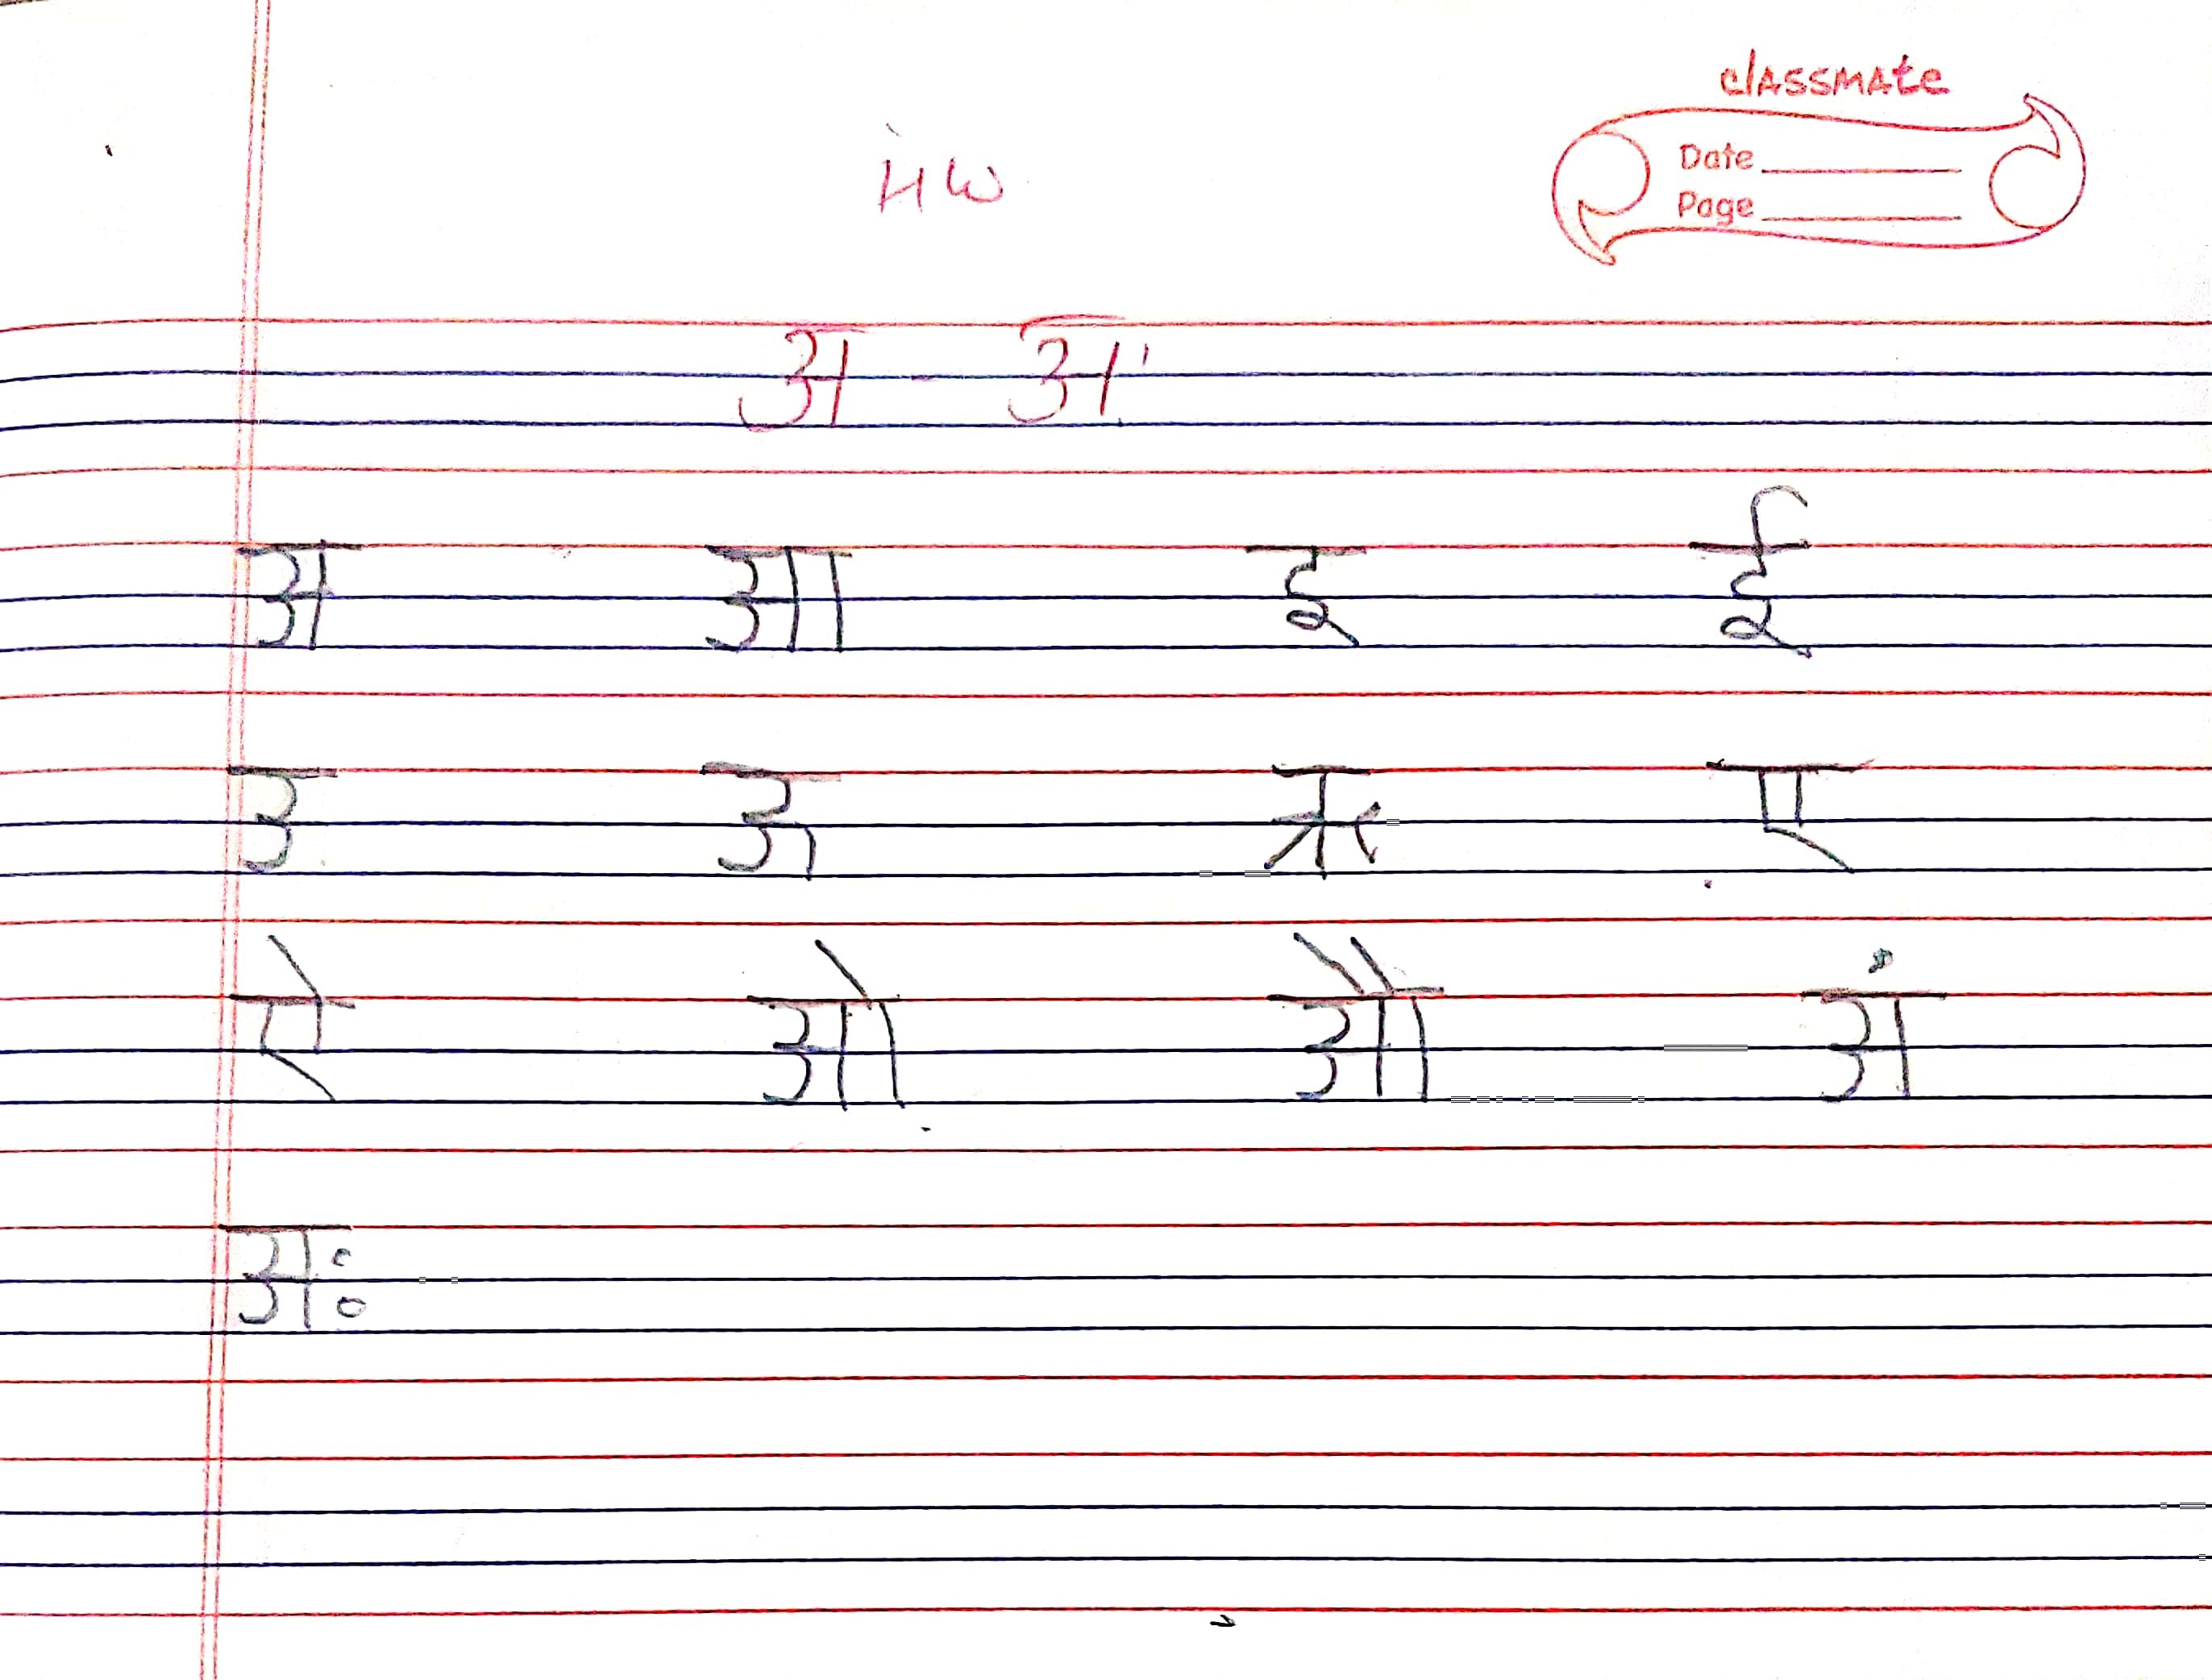 classmate
Date
Page
HW
अ - अ:
अ आ इ ई
उ ऊ ऋ ए
ऐ ओ औ अं
अः